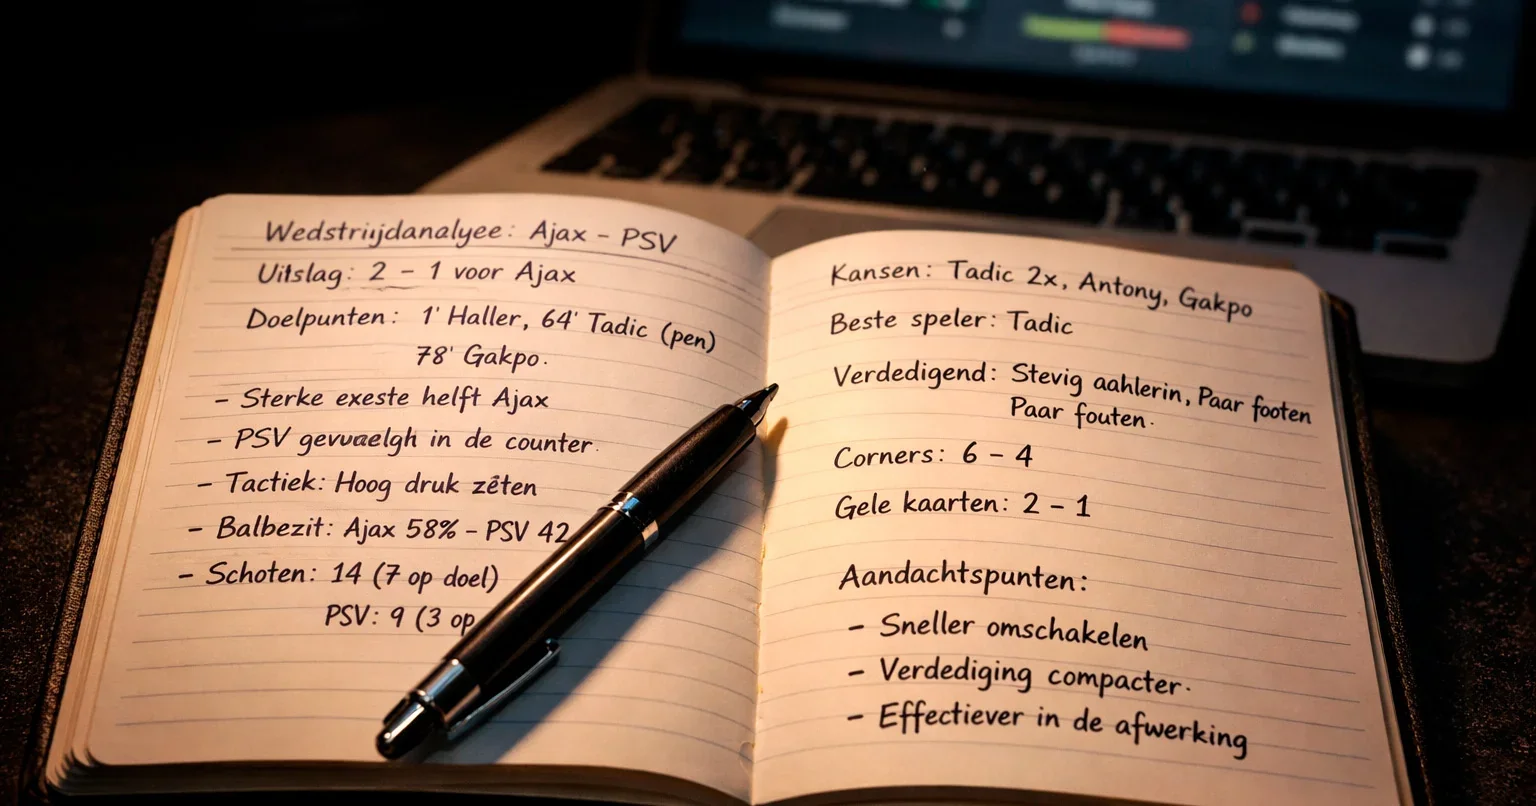 Wedstrijdanalyee: Ajax - PSV
Uitslag: 2 - 1 voor Ajax
Doelpunten: 1' Haller, 64' Tadic (pen)
78' Gakpo.
- Sterke exeste helft Ajax
- PSV in de counter.
- Tactiek: Hoog druk zêten
- Balbezit: Ajax 58% - PSV 42
- Schoten: 14 (7 op doel)
PSV: 9 (3 op
Kansen: Tadic 2x, Antony, Gakpo
Beste speler: Tadic
Verdedigend: Stevig aahlerin, Paar footen
Paar fouten.
Corners: 6 - 4
Gele kaarten: 2 - 1
Aandachtspunten:
- Sneller omschakelen
- Verdediging compacter.
- Effectiever in de afwerking